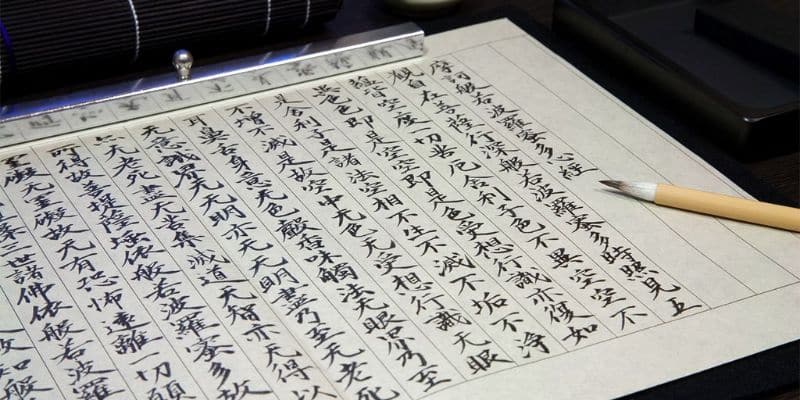 摩訶般若波羅蜜多心經
觀自在菩薩行深般若波羅蜜多時照見五
蘊皆空度一切苦厄舎利子色不異空空不
異色色即是空空即是色受想行識亦復如
是舎利子是諸法空相不生不滅不垢不浄
不増不減是故空中无色无受想行識无眼
耳鼻舌身意无色聲香味觸法无眼界乃至
无意識界无无明亦无无明盡乃至无老死
无老死盡无苦集滅道无智亦无得以
所得故菩提薩埵依般若波羅蜜多故
罣礙无罣礙故无有恐怖遠離一切顛
三世諸佛依般若波羅
故知般